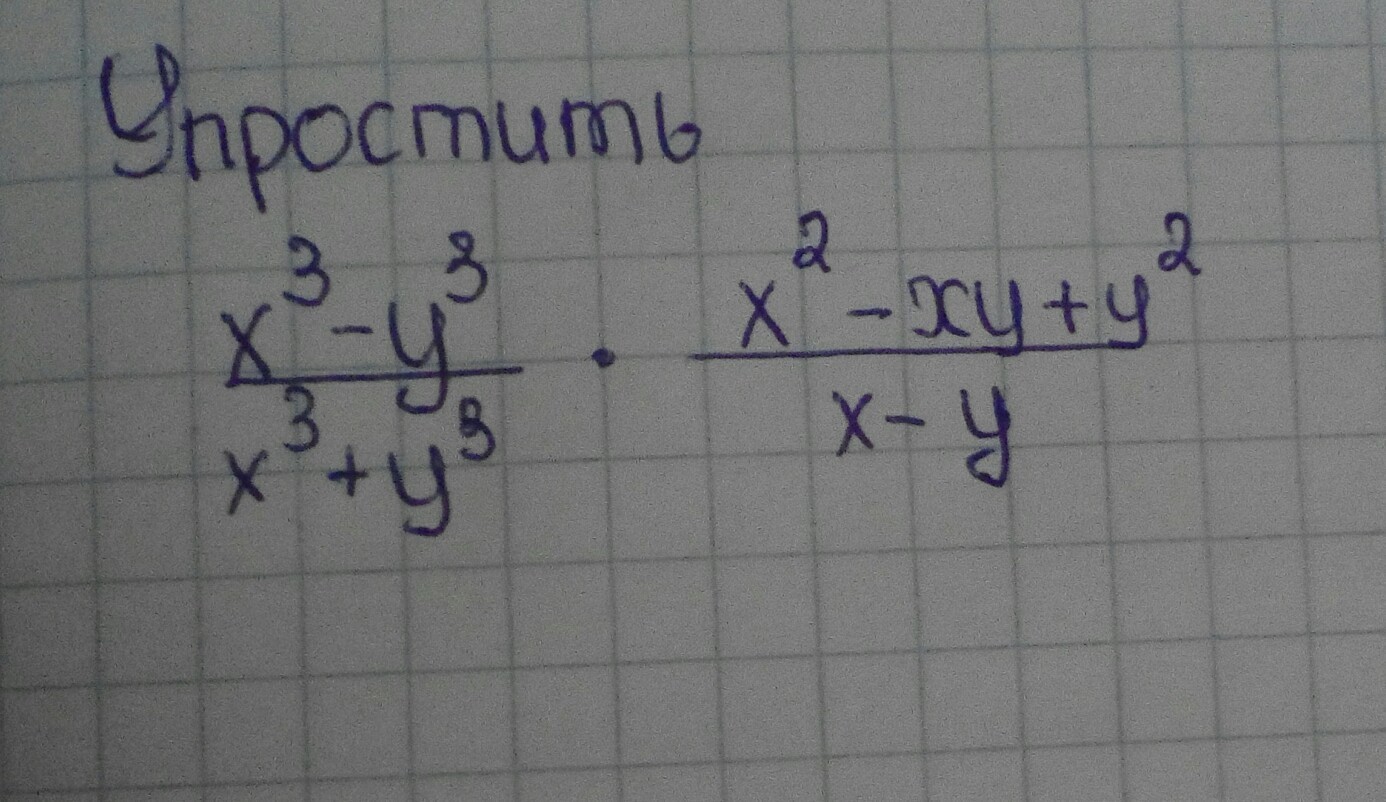 Упростить
x³-y³ / x³+y³ · x²-xy+y² / x-y